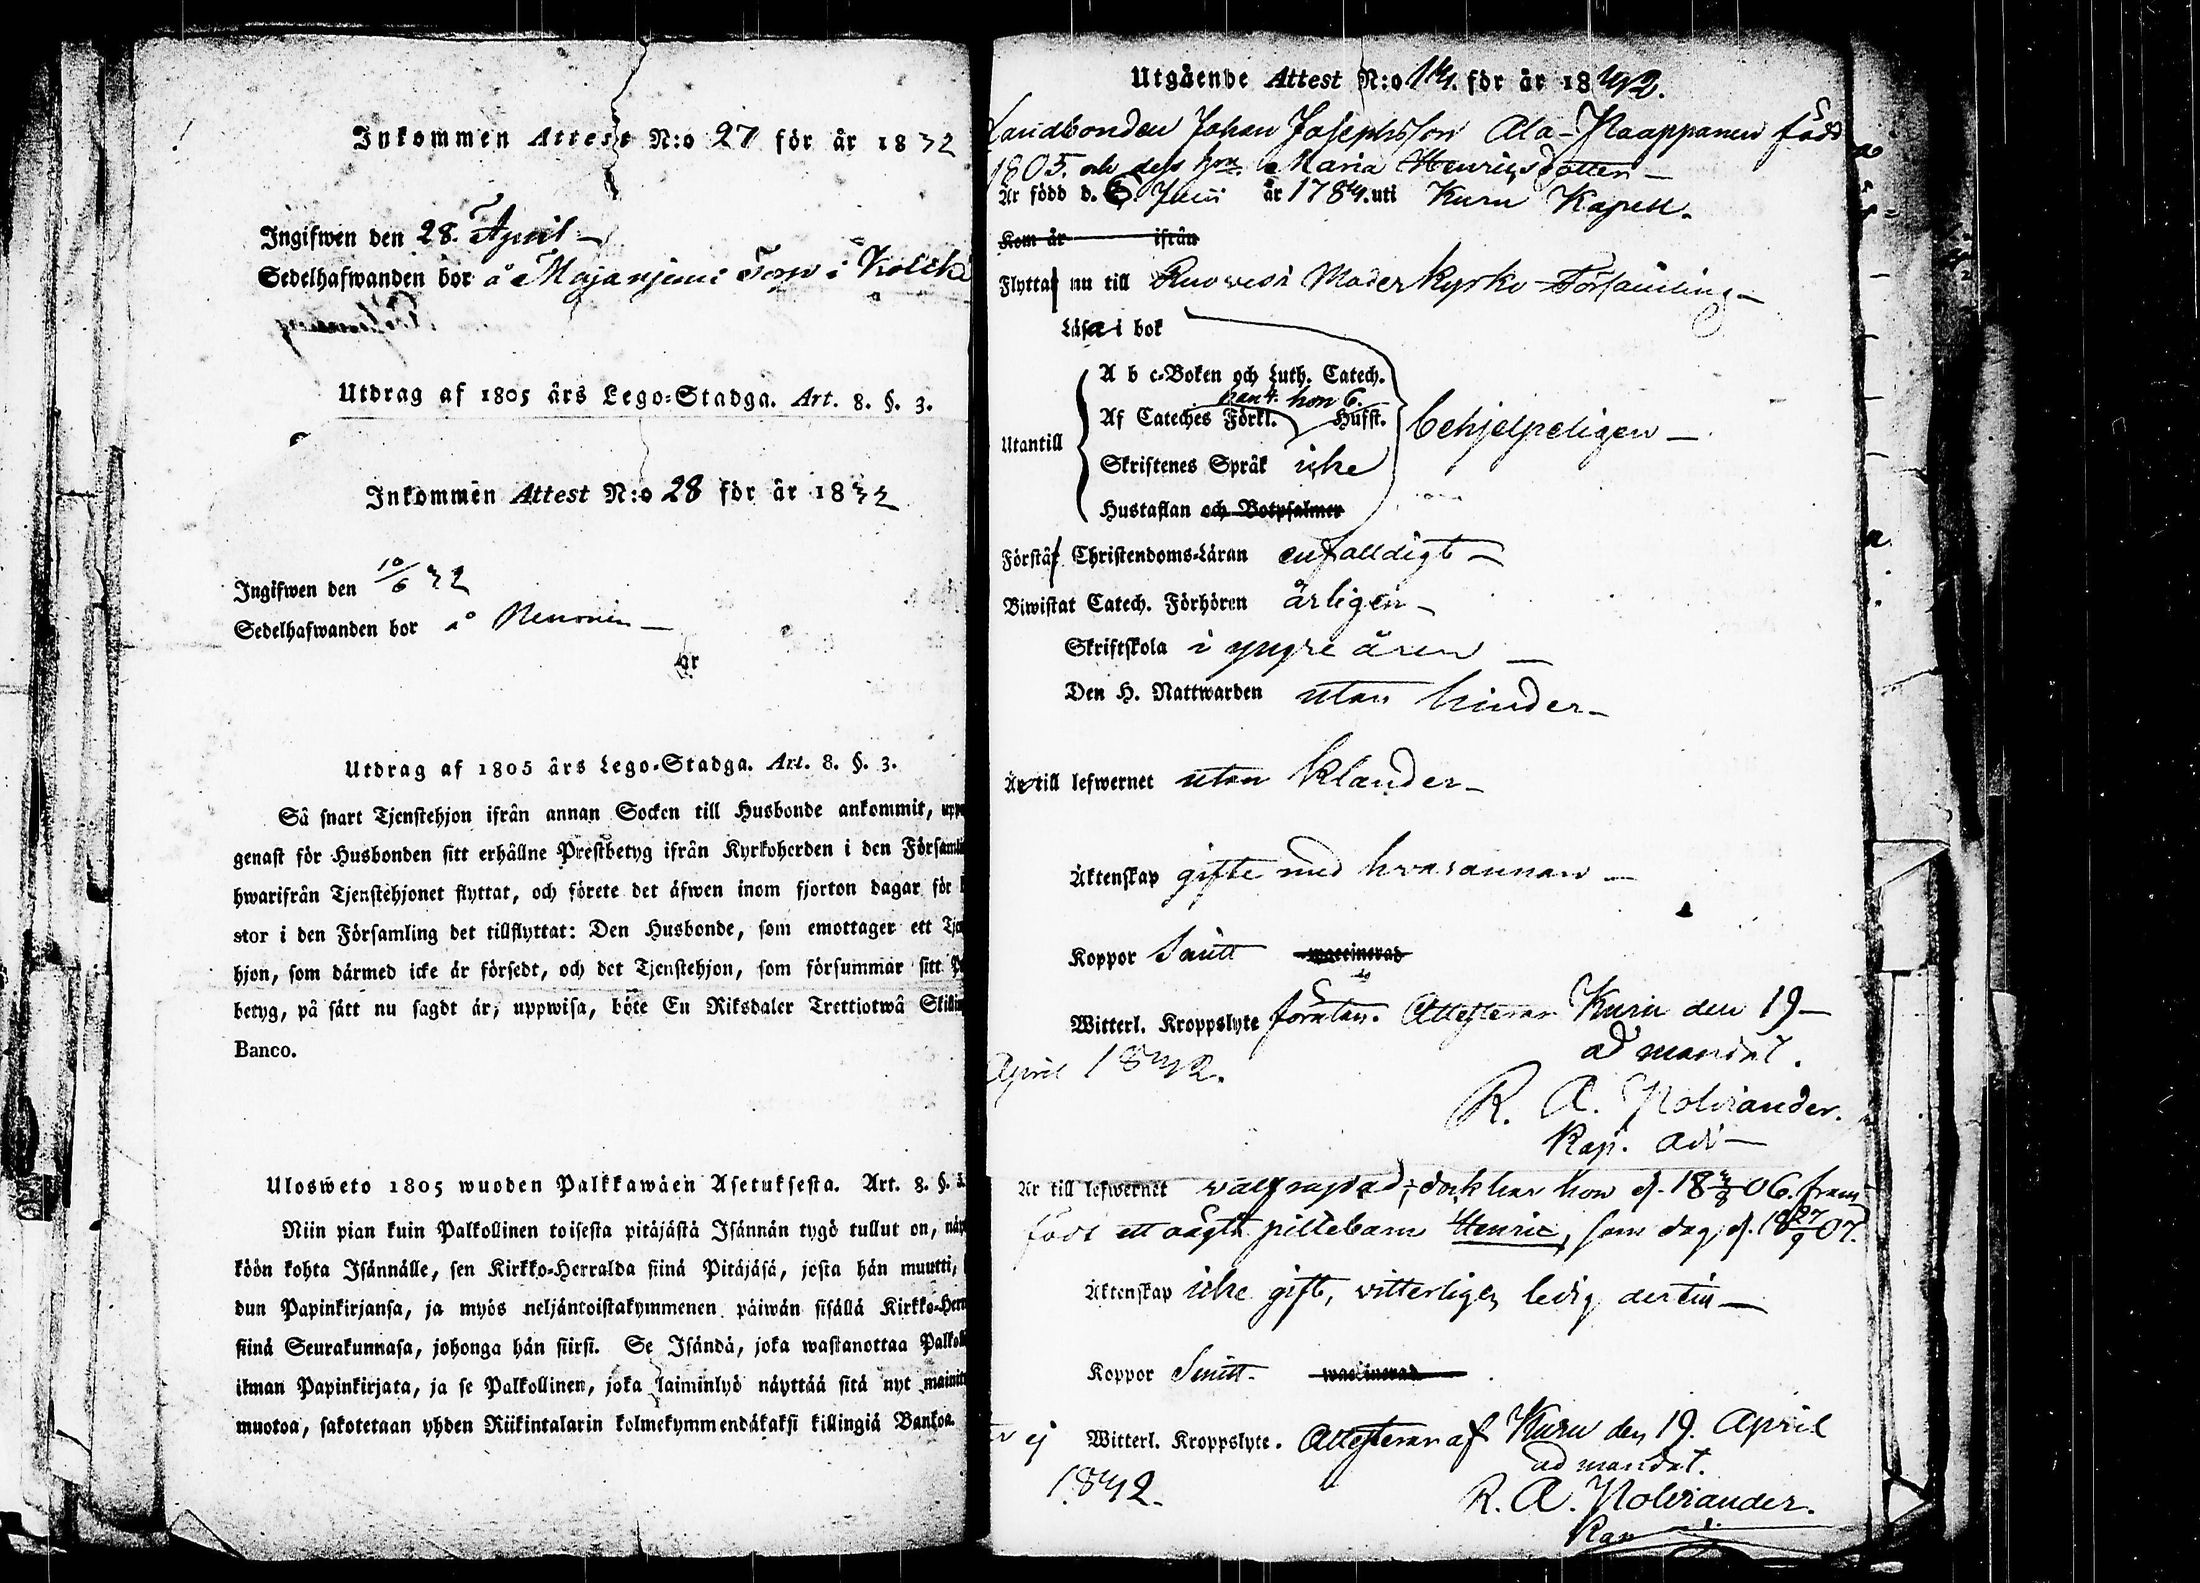 Inkommen Attest N:o 27 för år 1842
Ingifwen den 28. April
Sedelhafwanden bor å Majaniemi Torp i
Utdrag af 1805 års Lego-Stadga. Art. 8. §. 3.
Inkommen Attest N:o 28 för år 1842
Ingifwen den 10/6 42
Sedelhafwanden bor å
år
Utdrag af 1805 års Lego-Stadga. Art. 8. §. 3.
Så snart Tjenstehjon ifrån annan Socken till Husbonde ankommit,
genast för Husbonden sitt erhållne Prestbetyg ifrån Kyrkoherden i den Församli
hwarifrån Tjenstehjonet flyttat, och förete det äfwen inom fjorton dagar för
stor i den Församling det tillflyttat: Den Husbonde, som emottager ett Tje
hjon, som därmed icke är försedt, och det Tjenstehjon, som försummar sitt P
betyg, på sätt nu sagdt är, uppwisa, böte En Riksdaler Trettiotwå Skillin
Banco.
Ulosweto 1805 wuoden Palkkawäen Asetuksesta. Art. 8. §. 3.
Niin pian kuin Palkollinen toisesta pitäjästä Isännän tygö tullut on, näy
köön kohta Isännälle, sen Kirkko-Herralda siinä Pitäjäsä, josta hän muutti,
dun Papinkirjansa, ja myös neljäntoistakymmenen päiwän sisällä Kirkko-Herr
siinä Seurakunnasa, johonga hän siirsi. Se Isändä, joka wastanottaa Palkolli
ilman Papinkirjata, ja se Palkollinen, joka laiminlyö näyttää sitä nyt mainit
muotoa, sakotetaan yhden Riikintalarin kolmekymmendäkaksi killingiä Bankoa.
Utgående Attest N:o 14. för år 1842.
Landbonden Johan Josephsson Ala-Kaappanen född
1805. och dess hu. Maria Henricsdotter
Är född d. 6. Junii år 1784. uti Kuru Kapell.
Kom år ifrån
Flytta nu till Ruovesi Moderkyrko-Församling
Läsa i bok
A b c-Boken och Luth. Catech.
han 4. hon 6.
Af Cateches Förkl. Hufst. behjelpeligen
Utantill
Skriftenes Språk icke
Hustaflan och Botpsalmer
Förstå Christendoms-Läran enfalldigt
Biwistat Catech. Förhören årligen
Skriftskola i yngre åren
Den H. Nattwarden utan hinder
Är till lefwernet utan klander
Äktenskap gifte med hvarannan
Koppor vaccinerad
Witterl. Kroppslyte förutan. Attesterar Kuru den 19
April 1842. ad mandat.
R. A. Molviander.
Kap. adj
Är till lefwernet dock har hon d. 18 06. fram
födt ett oägta piltebarn Henric, som dog d. 18 07.
Äktenskap icke gift, vitterligen ledig dertill
Koppor vaccinerad
ej Witterl. Kroppslyte. Attesteras af Kuru den 19. April
1842. ad mandat.
R. A. Molviander.
Kap